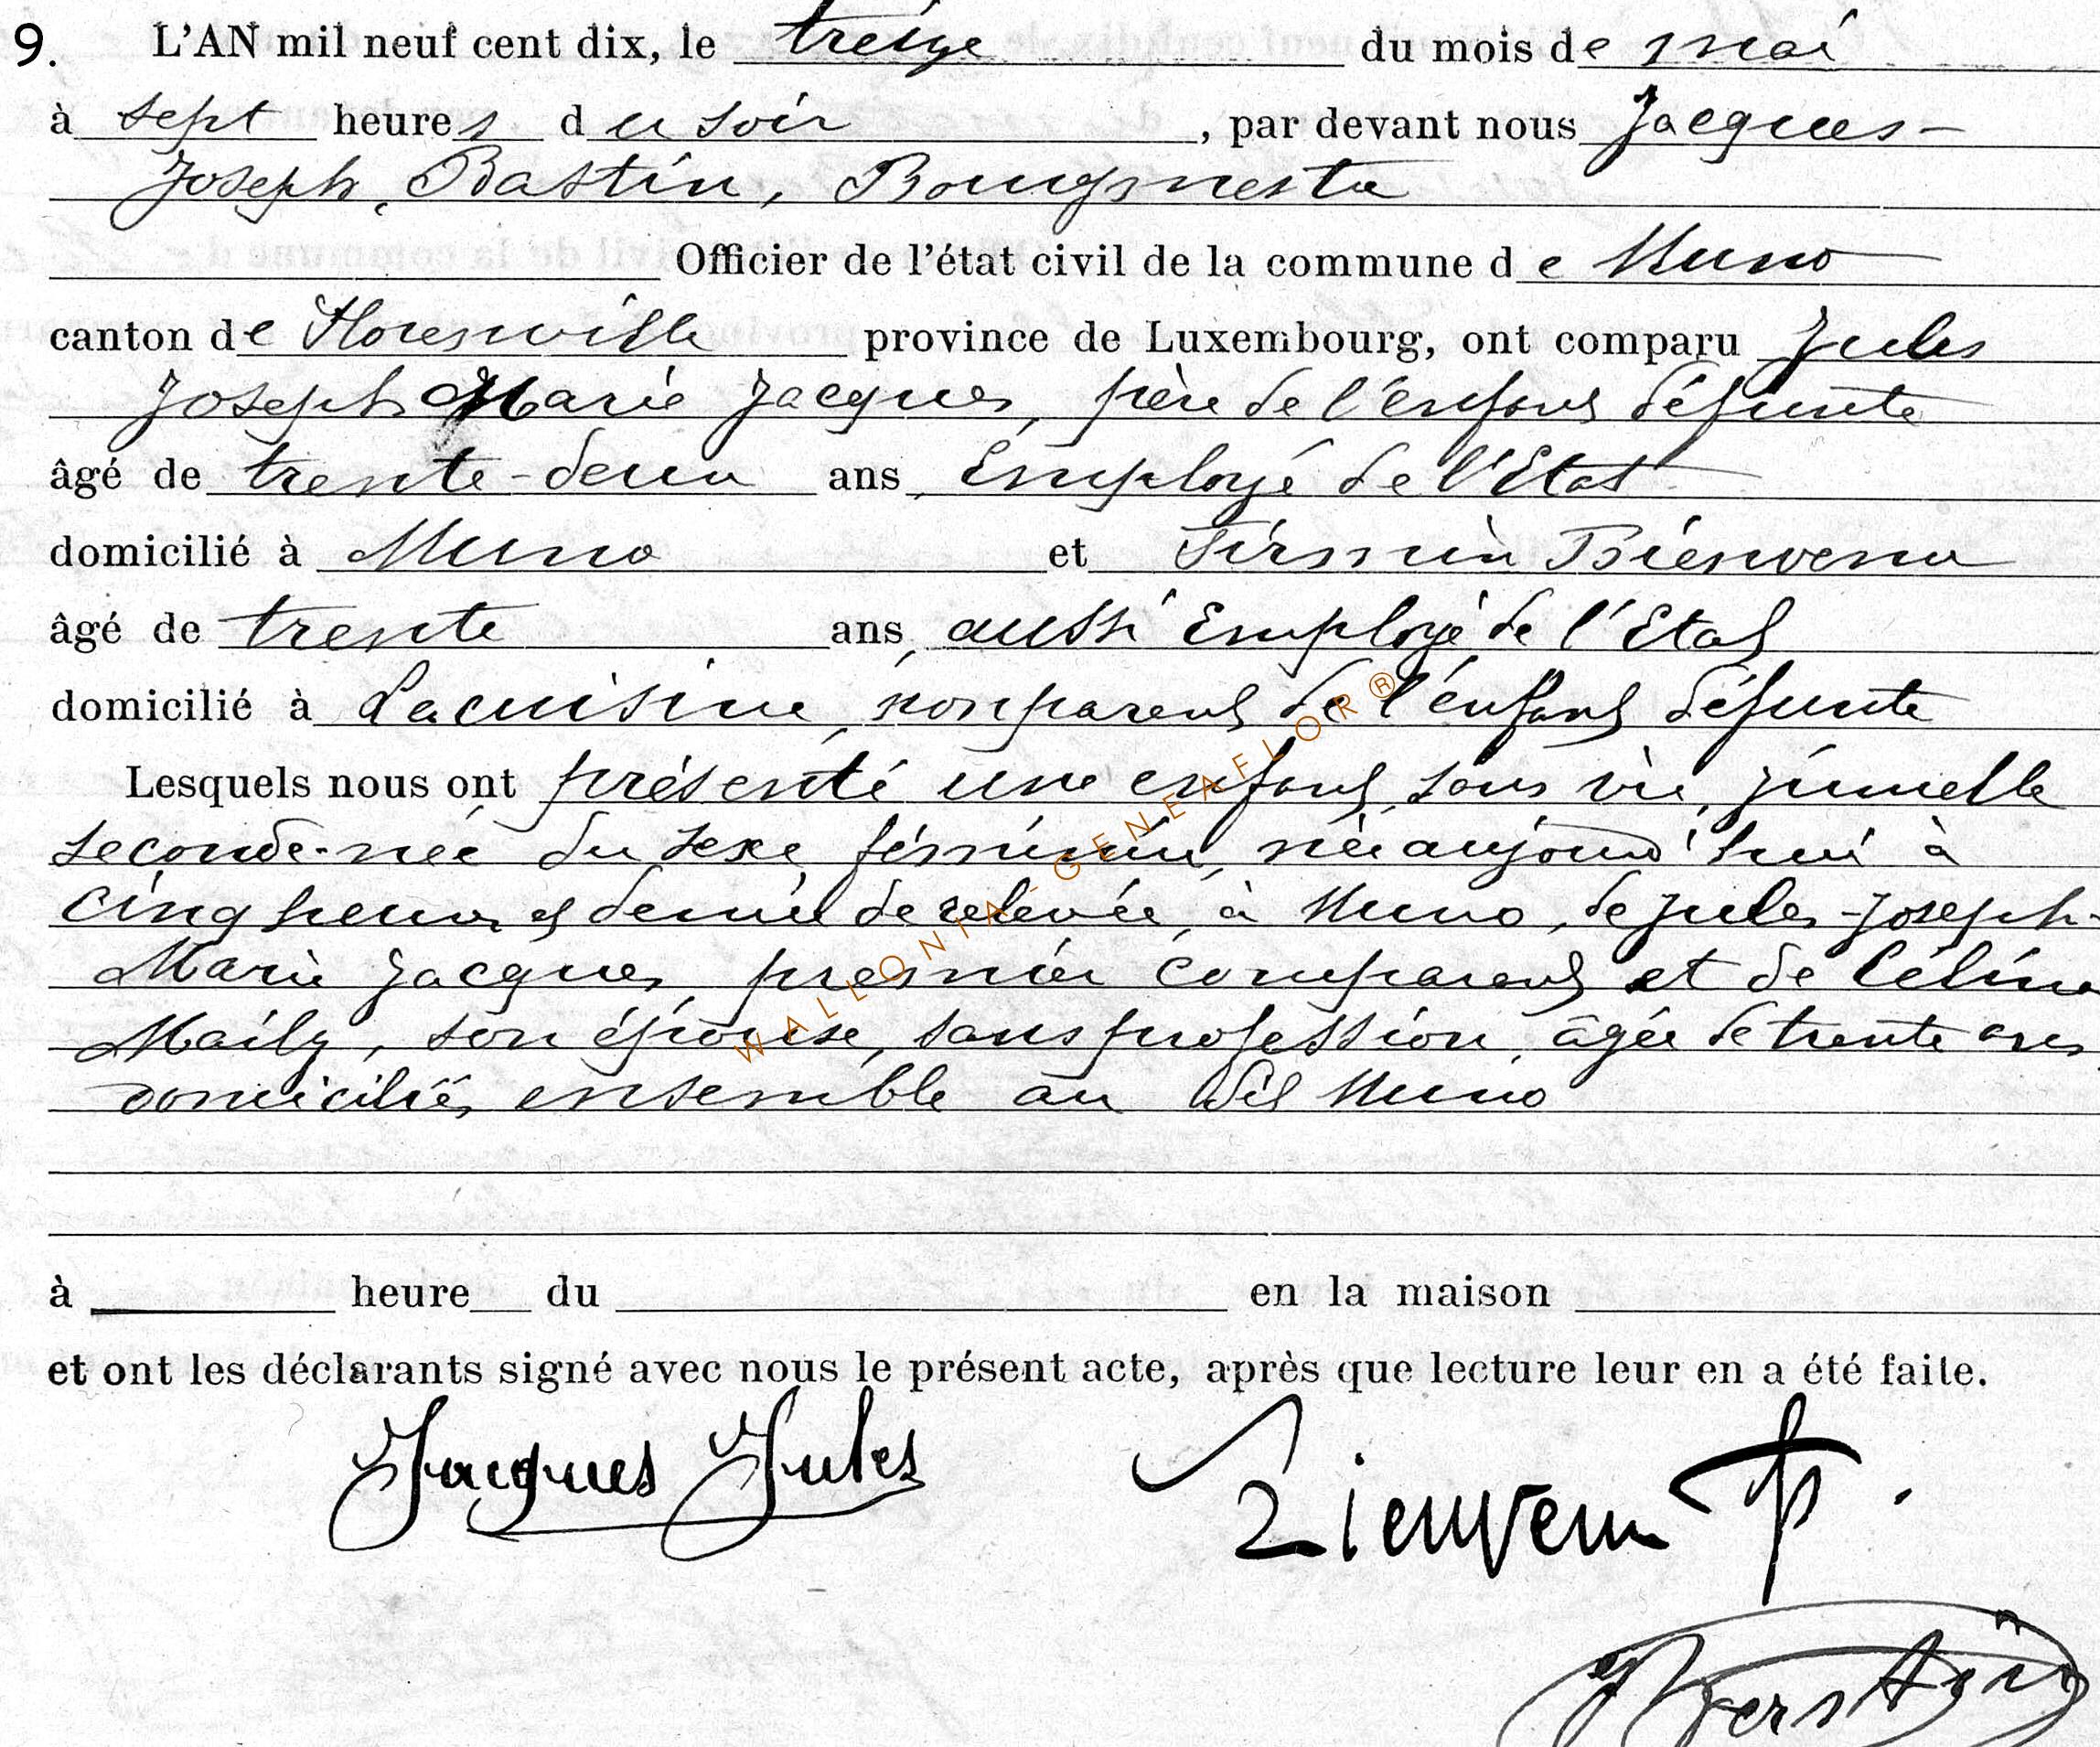 9. L'AN mil neuf cent dix, le treize du mois de mai
à sept heures du soir, par devant nous Jacques-
Joseph, Bastin, Bourgmestre
Officier de l'état civil de la commune de Muno
canton de Florenville province de Luxembourg, ont comparu Jules
Joseph Marie Jacques, père de l'enfant défunte
âgé de trente-deux ans, Employé de l'Etat
domicilié à Muno et Firmin Bienvenu
âgé de trente ans, aussi Employé de l'Etat
domicilié à Lacuisine, non parent de l'enfant défunte
Lesquels nous ont présenté une enfant sans vie, jumelle
seconde-née du sexe féminin, née aujourd'hui à
cinq heures et demie de relevée, à Muno, de Jules-Joseph-
Marie Jacques, premier comparant et de Céline
Maily, son épouse, sans profession, âgée de trente ans,
domiciliés ensemble au dit Muno
à heure du en la maison
et ont les déclarants signé avec nous le présent acte, après que lecture leur en a été faite.
Jacques Jules
Bienvenu F.
WALLONIA-GENEAFLOR®